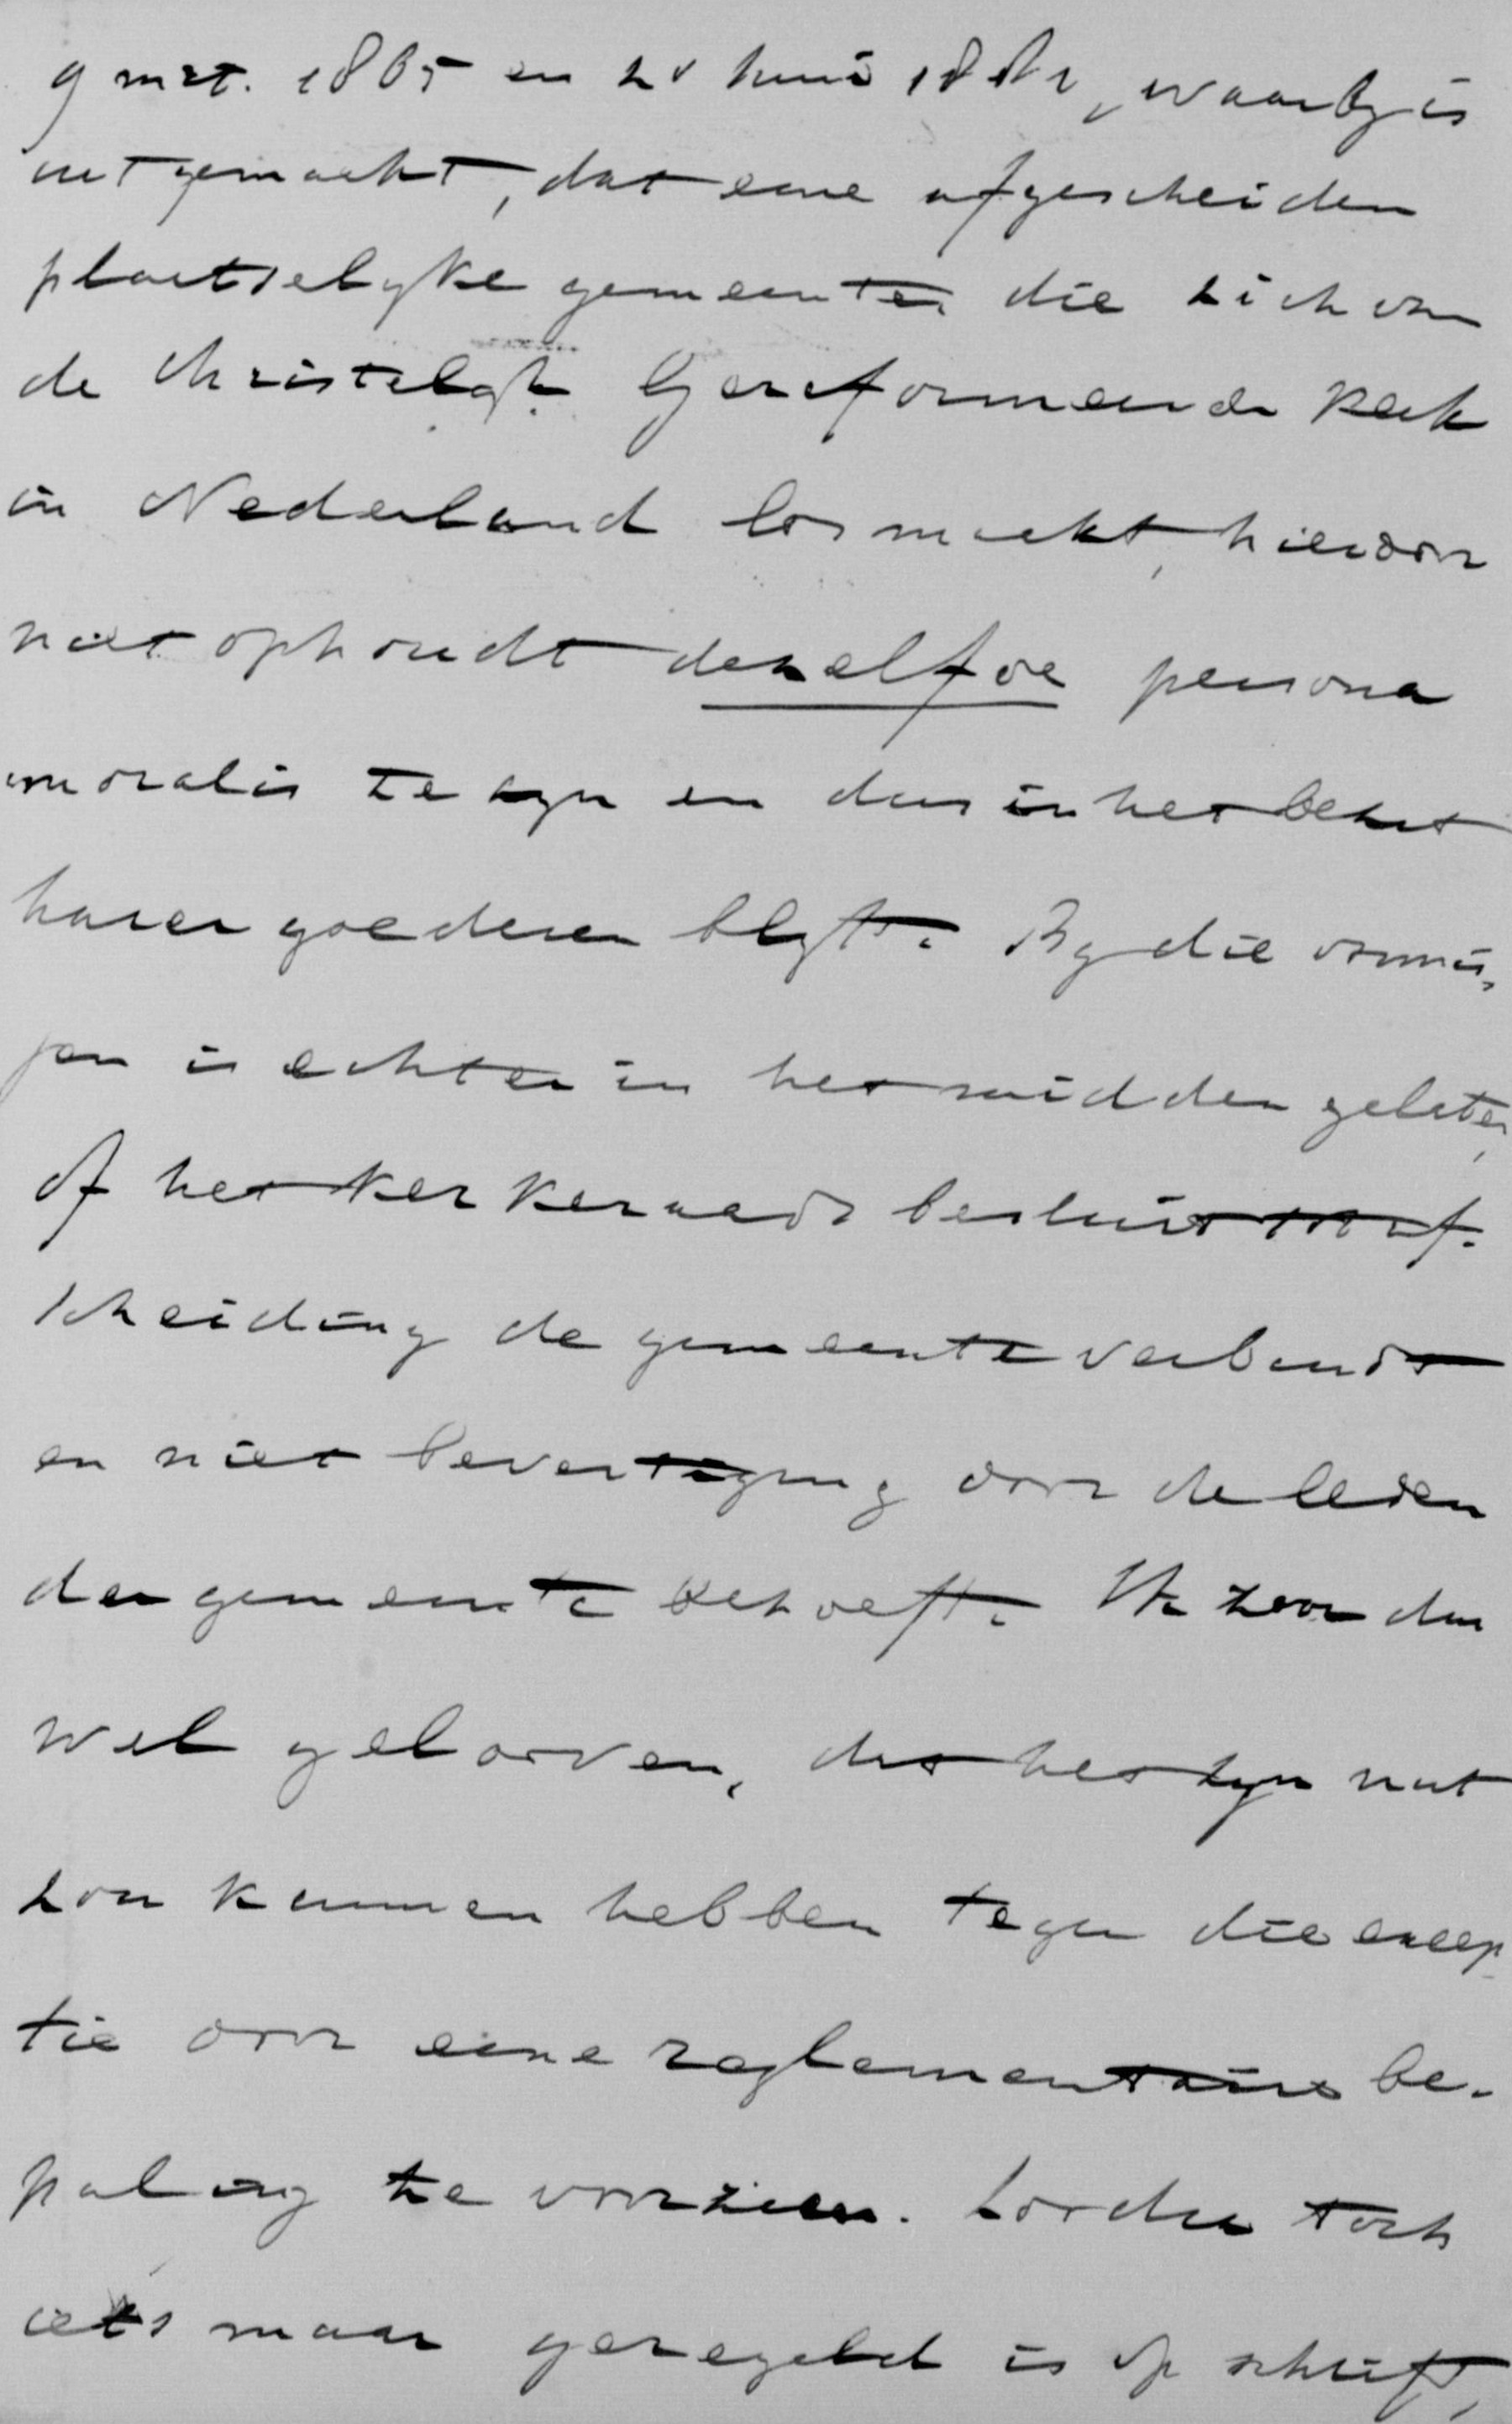 9 mrt. 1865 en 20 Juni 1881, waarby is
uitgemaakt, dat eene afgescheiden
plaatselyke gemeente, die zich van
de Christelyk Gereformeerde Kerk
in Nederland losmaakt, hierdoor
niet ophoudt dezelfde persona
moralis te zyn en dus in het bezit
harer goederen blyft. By die vonnis-
sen is echter in het midden gelaten,
of het kerkeraadsbesluit tot af-
scheiding de gemeente verbindt
en niet bevestiging door de leden
der gemeente behoeft. Ik zou dus
wel gelooven, dat het zyn nut
zou kunnen hebben tegen die excep-
tie door eene reglementaire be-
paling te voorzien. Zoodra toch
iets maar geregeld is op schrift,